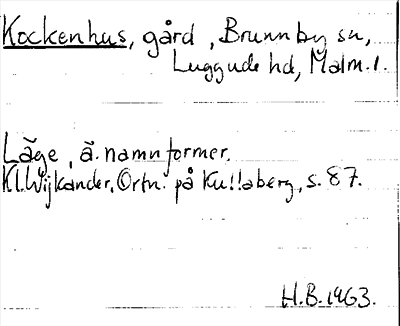 Kockenhus, gård, Brunnby sn,
Luggude hd, Malm. l.
Läge, ä. namnformer.
Kl. Wijkander, Ortn. på Kullaberg, s. 87.
H.B. 1963.